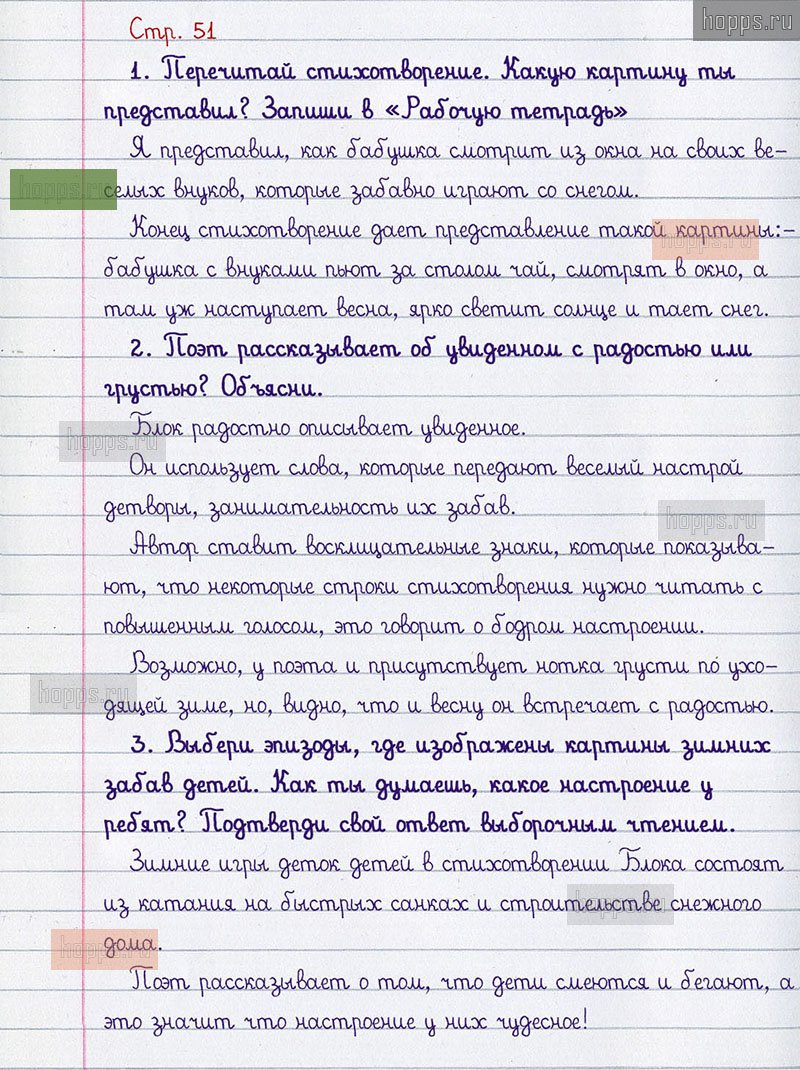 hopps.ru
Стр. 51
1. Перечитай стихотворение. Какую картину ты
представил? Запиши в «Рабочую тетрадь»
Я представил, как бабушка смотрит из окна на своих ве-
hopps.ru
селых внуков, которые забавно играют со снегом.
Конец стихотворение дает представление такой картины:-
hopps.ru
бабушка с внуками пьют за столом чай, смотрят в окно, а
там уж наступает весна, ярко светит солнце и тает снег.
2. Поэт рассказывает об увиденном с радостью или
грустью? Объясни.
Блок радостно описывает увиденное.
hopps.ru
Он использует слова, которые передают веселый настрой
детворы, занимательность их забав.
hopps.ru
Автор ставит восклицательные знаки, которые показыва-
ют, что некоторые строки стихотворения нужно читать с
повышенным голосом, это говорит о бодром настроении.
Возможно, у поэта и присутствует нотка грусти по ухо-
hopps.ru
дящей зиме, но, видно, что и весну он встречает с радостью.
3. Выбери эпизоды, где изображены картины зимних
забав детей. Как ты думаешь, какое настроение у
ребят? Подтверди свой ответ выборочным чтением.
Зимние игры деток детей в стихотворении Блока состоят
из катания на быстрых санках и строительстве снежного
hopps.ru
дома.
hopps.ru
Поэт рассказывает о том, что дети смеются и бегают, а
это значит что настроение у них чудесное!